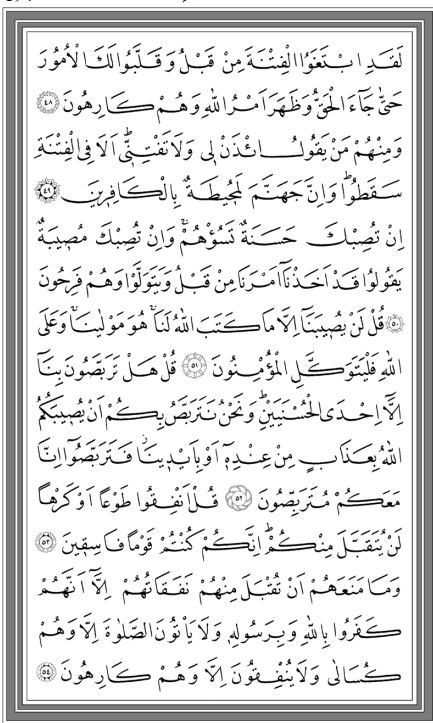 لَقَدِ ابْتَغَوُا الْفِتْنَةَ مِنْ قَبْلُ وَقَلَّبُوا لَكَ الْاُمُورَ
حَتّٰى جَٓاءَ الْحَقُّ وَظَهَرَ اَمْرُ اللّٰهِ وَهُمْ كَارِهُونَ ﴿٤٨﴾
وَمِنْهُمْ مَنْ يَقُولُ ائْذَنْ لٖى وَلَا تَفْتِنّٖى اَلَا فِى الْفِتْنَةِ
سَقَطُوا وَاِنَّ جَهَنَّمَ لَمُحٖيطَةٌ بِالْكَافِرٖينَ ﴿٤٩﴾
اِنْ تُصِبْكَ حَسَنَةٌ تَسُؤْهُمْ وَاِنْ تُصِبْكَ مُصٖيبَةٌ
يَقُولُوا قَدْ اَخَذْنَٓا اَمْرَنَا مِنْ قَبْلُ وَيَتَوَلَّوْا وَهُمْ فَرِحُونَ
﴿٥٠﴾ قُلْ لَنْ يُصٖيبَنَٓا اِلَّا مَا كَتَبَ اللّٰهُ لَنَا هُوَ مَوْلٰينَا وَعَلَى
اللّٰهِ فَلْيَتَوَكَّلِ الْمُؤْمِنُونَ ﴿٥١﴾ قُلْ هَلْ تَرَبَّصُونَ بِنَٓا
اِلَّٓا اِحْدَى الْحُسْنَيَيْنِ وَنَحْنُ نَتَرَبَّصُ بِكُمْ اَنْ يُصٖيبَكُمُ
اللّٰهُ بِعَذَابٍ مِنْ عِنْدِهٖٓ اَوْ بِاَيْدٖينَا فَتَرَبَّصُٓوا اِنَّا
مَعَكُمْ مُتَرَبِّصُونَ ﴿٥٢﴾ قُلْ اَنْفِقُوا طَوْعًا اَوْ كَرْهًا
لَنْ يُتَقَبَّلَ مِنْكُمْ اِنَّكُمْ كُنْتُمْ قَوْمًا فَاسِقٖينَ ﴿٥٣﴾
وَمَا مَنَعَهُمْ اَنْ تُقْبَلَ مِنْهُمْ نَفَقَاتُهُمْ اِلَّٓا اَنَّهُمْ
كَفَرُوا بِاللّٰهِ وَبِرَسُولِهٖ وَلَا يَاْتُونَ الصَّلٰوةَ اِلَّا وَهُمْ
كُسَالٰى وَلَا يُنْفِقُونَ اِلَّا وَهُمْ كَارِهُونَ ﴿٥٤﴾